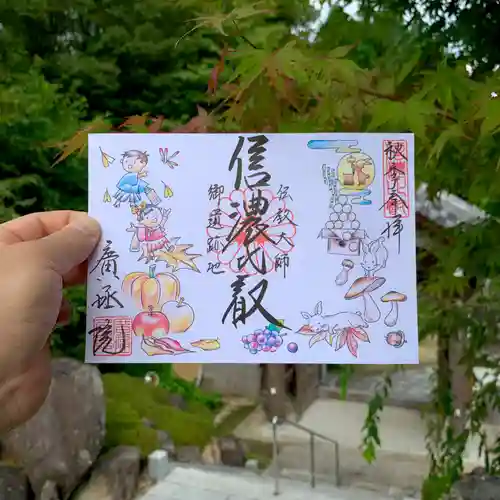 秋季
奉拝
伝教大師
信濃比叡
御遺跡地
廣拯院